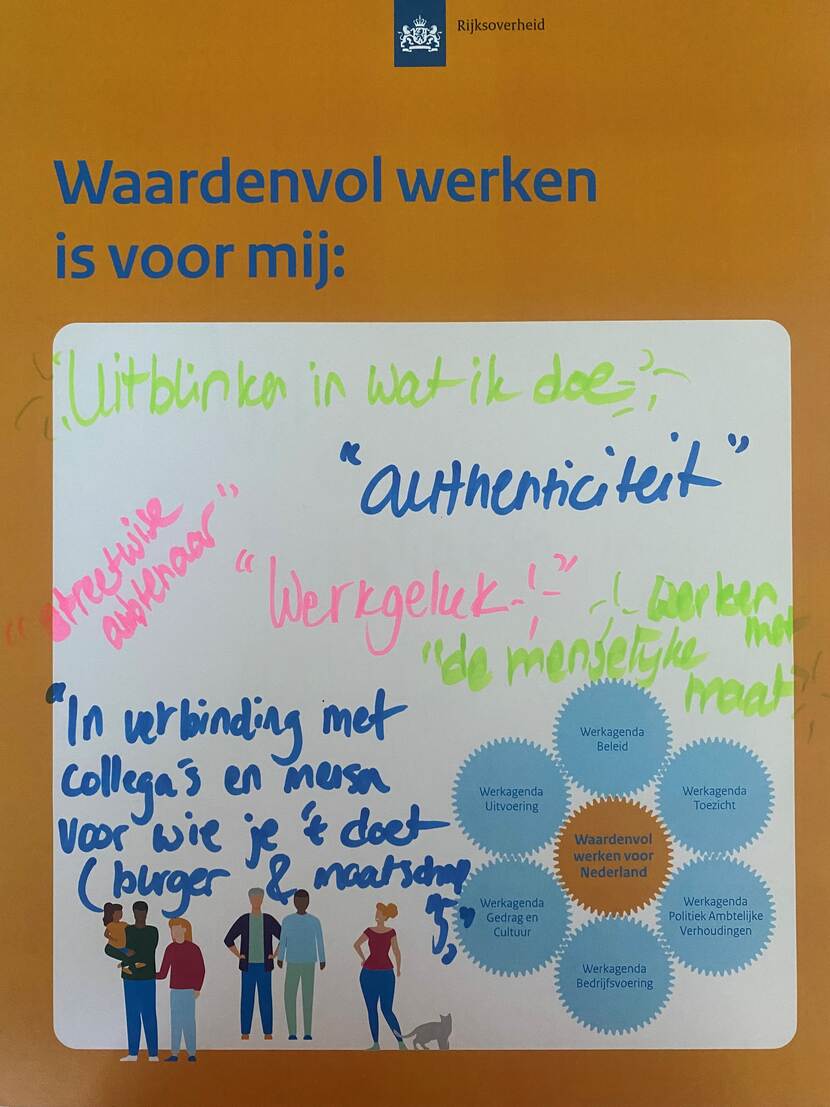 Rijksoverheid
Waardenvol werken
is voor mij:
Uitblinken in wat ik doe
"authenticiteit"
"streetwise
ambtenaar"
"Werkgeluk!"
! werken
met
"de menselijke
maat"
"In verbinding met
collega's en mensen
voor wie je 't doet
(burger & maatschap
pij)"
Werkagenda
Beleid
Werkagenda
Uitvoering
Werkagenda
Toezicht
Waardenvol
werken voor
Nederland
Werkagenda
Gedrag en
Cultuur
Werkagenda
Politiek Ambtelijke
Verhoudingen
Werkagenda
Bedrijfsvoering